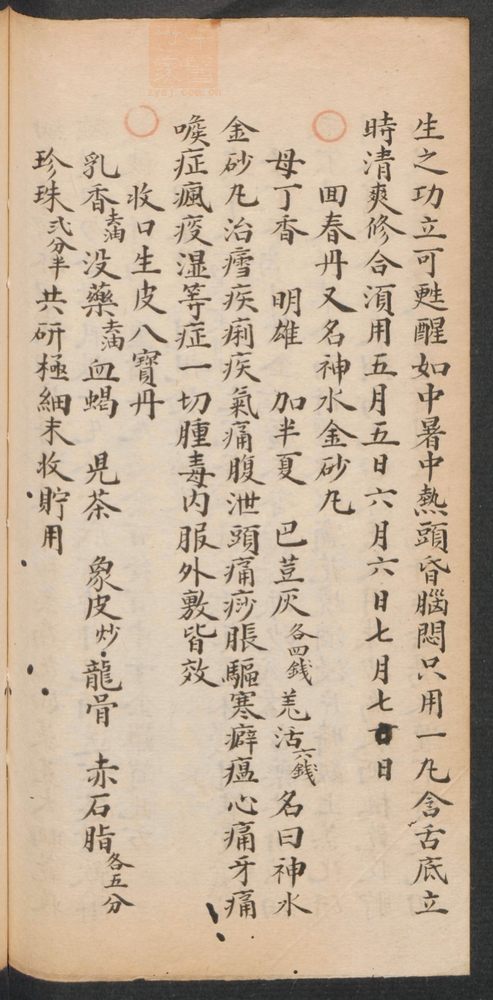 生之功立可甦醒如中暑中熱頭昏腦悶只用一凡含舌底立
時清爽修合湏用五月五日六月六日七月七日
回春丹又名神水金砂凡
母丁香 明雄 加半夏 巴荳灰各四錢羗活六錢名曰神水
金砂凡治瘧疾痢疾氣痛腹泄頭痛痧脹驅寒癖瘟心痛牙痛
喉症瘋疫湿等症一切腫毒内服外敷皆效
收口生皮八寶丹
乳香去油没藥去油血蝎 児茶 象皮炒龍骨 赤石脂各五分
珍珠弍分半共研極細末收貯用